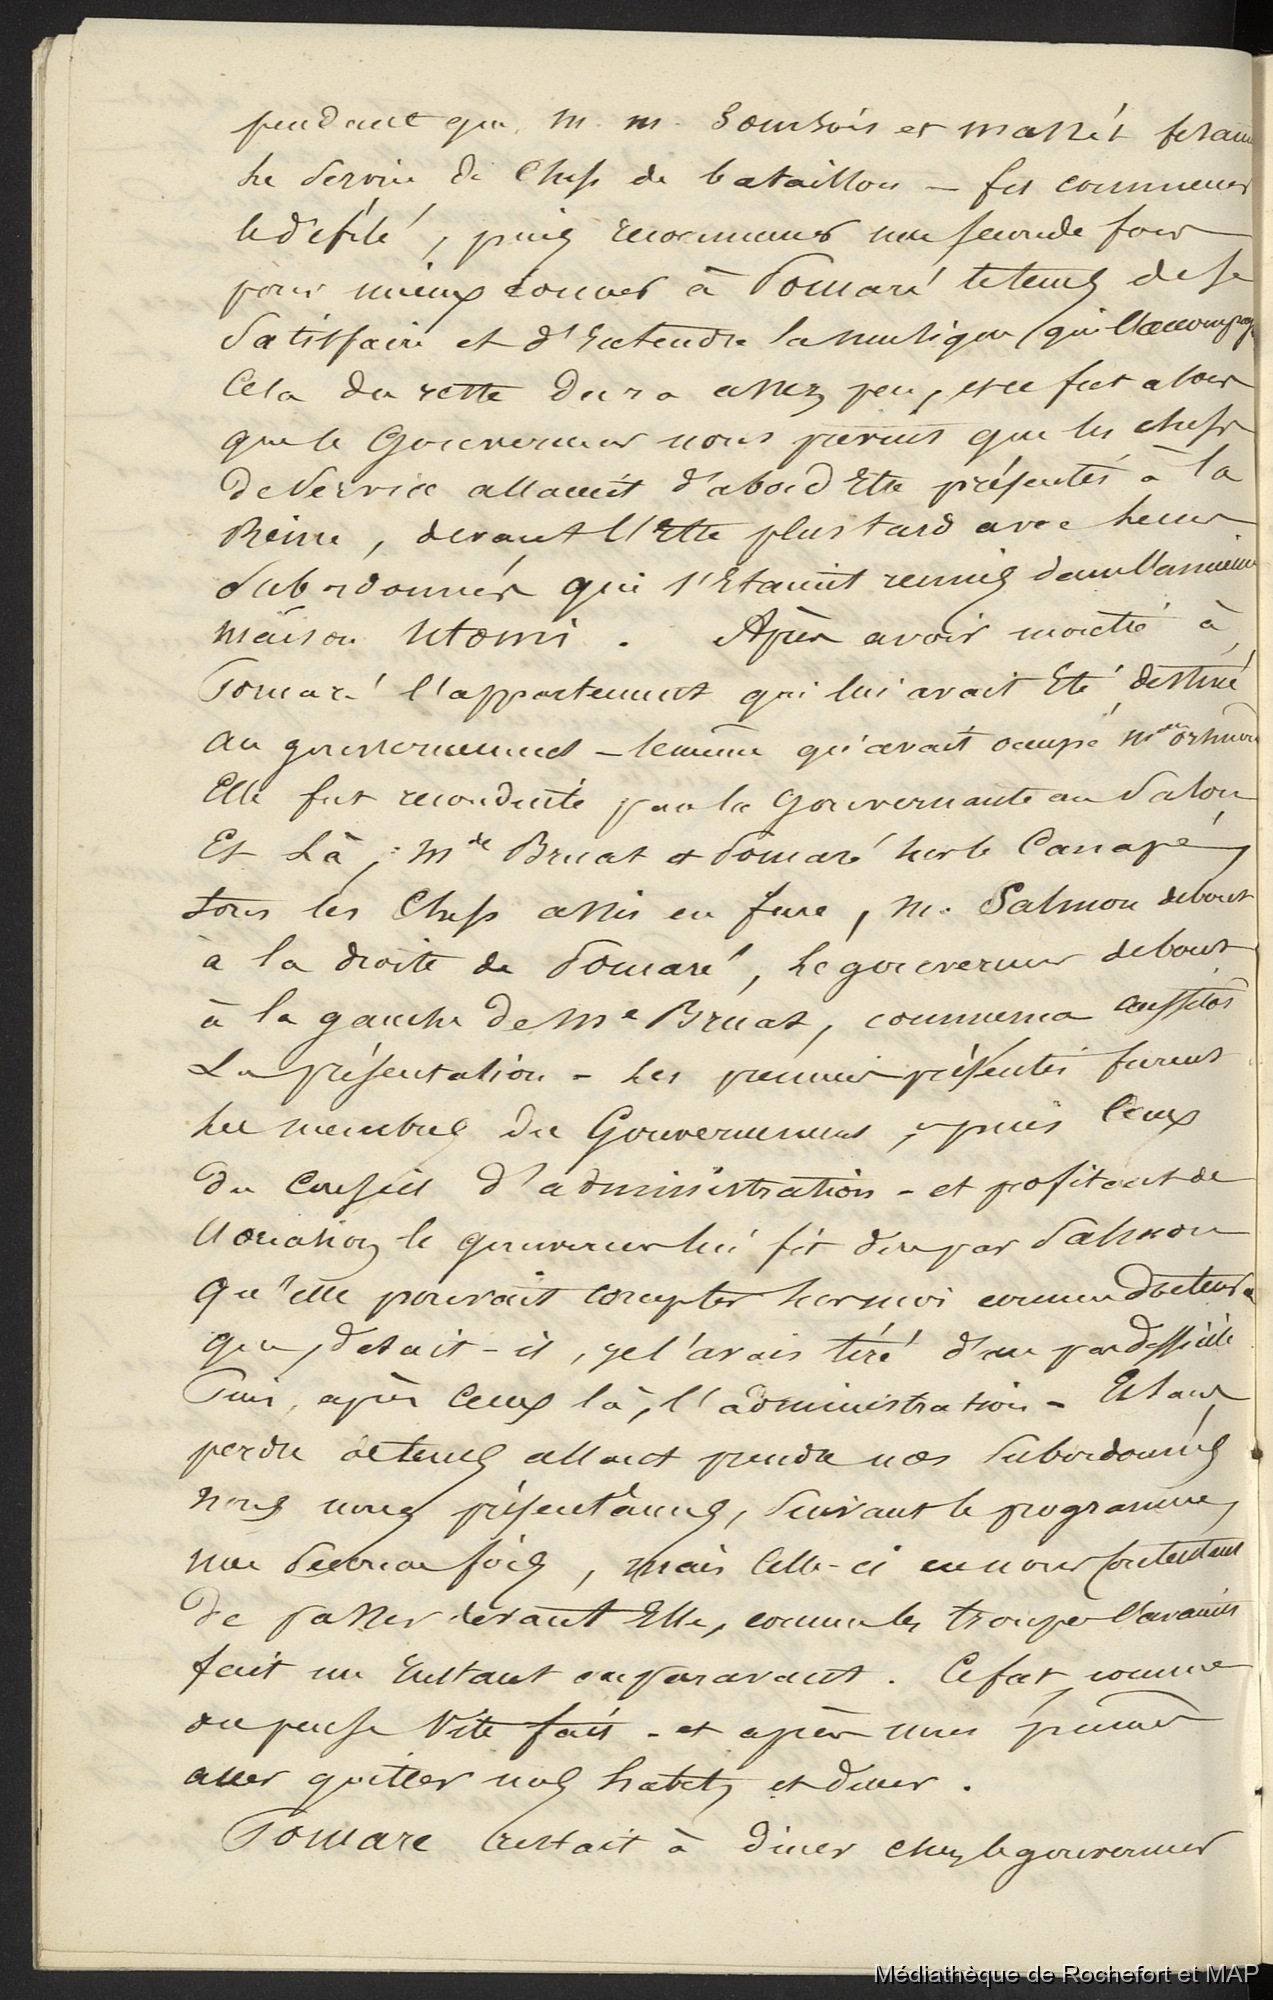 pendant que M. M. Sourbois et Massét fesaient
le Service de Chefs de bataillon – fit commencer
le défilé, puis recommencer une seconde fois
pour mieux donner à Pomaré le tems de se
Satisfaire et d'Entendre la musique qui l'accompag
Cela du reste dura assez peu, et ce fut alors
que le Gouverneur nous prévint que les chefs
de Service allaient d'abord Etre présentés à la
Reine, devant l'Etre plus tard avec leurs
Subordonnés qui s'Etaient reunis dans l'ancienne
maison Utomi. Après avoir montré à
Pomaré l'appartement qui lui avait Eté destiné
au gouvernement – le même qu'avait occupé Mr
Elle fut reconduite par la Gouvernante au Salon
Et Là, Mde Bruat et Pomaré sur le Canapé,
tous les Chefs assis en face, M. Salmon debout
à la droite de Pomaré, Le gouverneur debout
à la gauche de Me Bruat, commença aussitôt
La présentation – Les premiers présentés furent
les membres du Gouvernement, puis Ceux
du Conseil d'administration – et profitant de
l'occasion le gouverneur lui fit dire par Salmon
qu'elle pouvait compter sur moi comme docteur
que, disait-il, je l'avais tiré d'un pas difficile
Puis, après Ceux là, l'administration – Et sans
perdre de tems allant prendre nos Subordonnés
nous nous présentâmes, Suivant le programme,
une Seconde fois, mais Celle-ci en nous contentant
de passer devant Elle, comme les troupes l'avaient
fait un Instant auparavant. Ce fut comme
on pense Vite fait – et après nous pûmes
aller quitter nos habits et diner.
Pomare restait à diner chez le gouverneur
Médiathèque de Rochefort et MAP